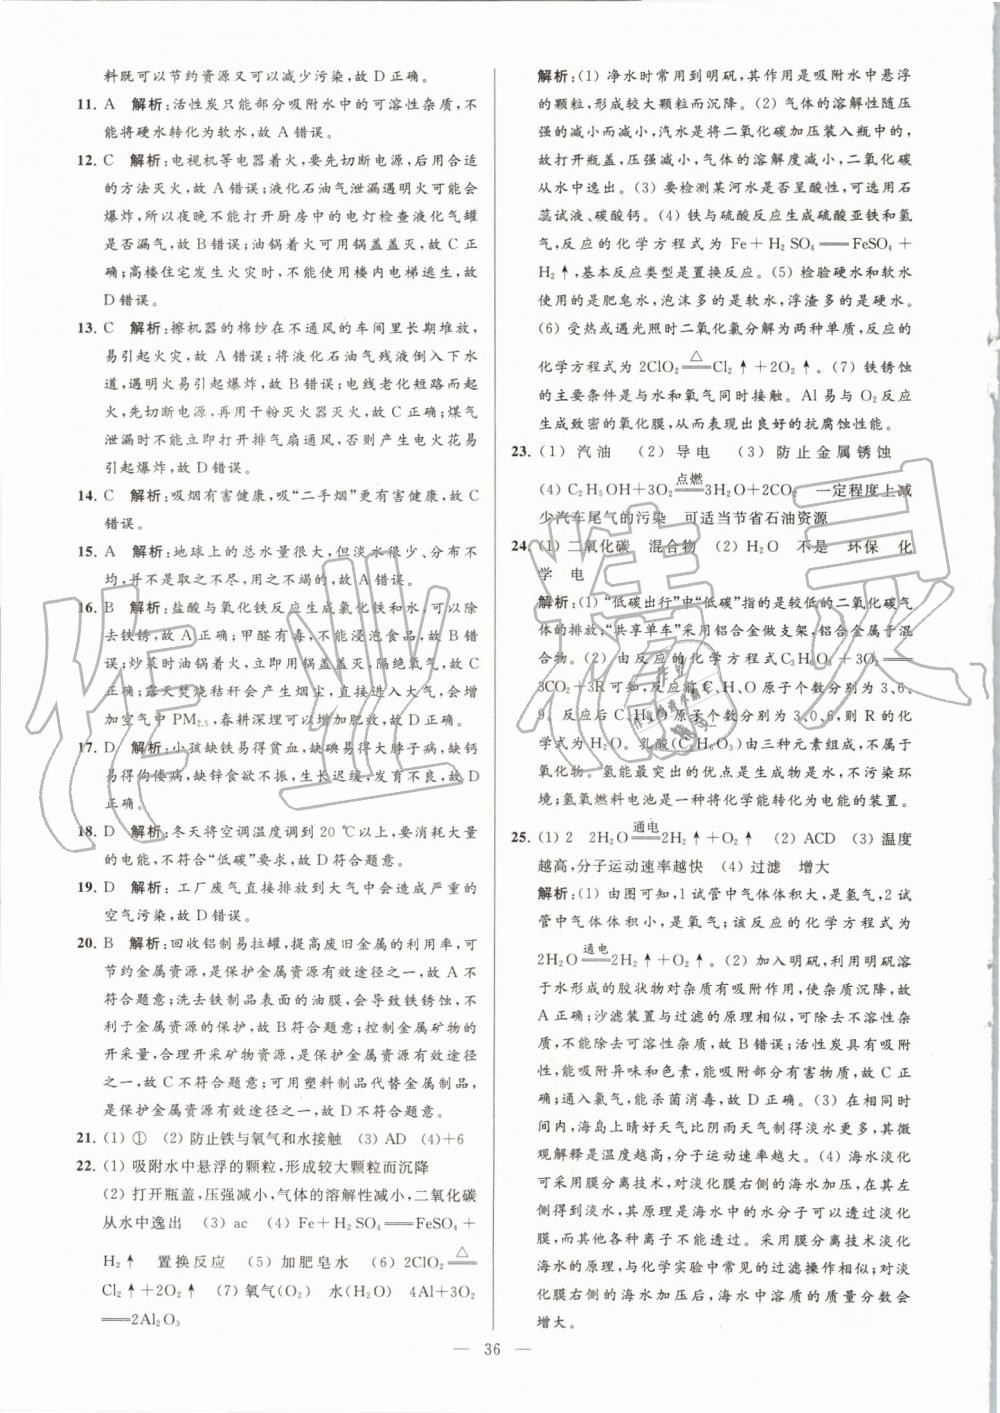 料既可以节约资源又可以减少污染,故D正确。
11. A 解析:活性炭只能部分吸附水中的可溶性杂质,不
能将硬水转化为软水,故A错误。
12. C 解析:电视机等电器着火,要先切断电源,后用合适
的方法灭火,故A错误;液化石油气泄漏遇明火可能会
爆炸,所以夜晚不能打开厨房中的电灯检查液化气罐
是否漏气,故B错误;油锅着火时可用锅盖盖灭,故C正
确;高楼住宅发生火灾时,不能使用楼内电梯逃生,故
D错误。
13. C 解析:擦机器的棉纱在不通风的车间里长期堆放,
易引起火灾,故A错误;将液化石油气残液倒入下水
道,遇明火易引起爆炸,故B错误;电线老化短路而起
火,先切断电源,再用干粉灭火器灭火,故C正确;煤气
泄漏时不能立即打开排气扇通风,否则产生电火花易
引起爆炸,故D错误。
14. C 解析:吸烟有害健康,吸“二手烟”更有害健康,故C
错误。
15. A 解析:地球上的总水量很大,但淡水很少、分布不
均,并不是取之不尽,用之不竭的,故A错误。
16. B 解析:盐酸与氧化铁反应生成氯化铁和水,可以除
去铁锈,故A正确;甲醛有毒,不能浸泡食品,故B错
误;炒菜时油锅着火,可用锅盖盖灭,隔绝氧气,故C正
确;露天焚烧秸秆会产生烟尘,直接进入大气,会增
加空气中PM2.5,春耕深埋可以增加肥效,故D正确。
17. D 解析:小孩缺铁易得贫血,缺碘易得大脖子病,缺钙
易得佝偻病,缺锌食欲不振,生长迟缓,发育不良,故D
正确。
18. D 解析:冬天将空调温度调到20 ℃以上,要消耗大量
的电能,不符合“低碳”要求,故D符合题意。
19. D 解析:工厂废气直接排放到大气中会造成严重的
空气污染,故D错误。
20. B 解析:回收铝制易拉罐,提高废旧金属的利用率,可
节约金属资源,是保护金属资源有效途径之一,故A不
符合题意;洗去铁制品表面的油膜,会导致铁锈蚀,不
利于金属资源的保护,故B符合题意;控制金属矿物的
开采量,合理开采矿物资源,是保护金属资源有效途径
之一,故C不符合题意;可用塑料制品代替金属制品,
是保护金属资源有效途径之一,故D不符合题意。
21. (1) ① (2) 防止铁与氧气和水接触 (3) AD (4)+6
22. (1) 吸附水中悬浮的颗粒,形成较大颗粒而沉降
(2) 打开瓶盖,压强减小,气体的溶解性减小,二氧化碳
从水中逸出 (3) ac (4) Fe+H2SO4══FeSO4+
H2↑ 置换反应 (5) 加肥皂水 (6) 2ClO2══△
Cl2↑+2O2↑ (7) 氧气(O2) 水(H2O) 4Al+3O2
══2Al2O3
解析:(1) 净水时常用到明矾,其作用是吸附水中悬浮
的颗粒,形成较大颗粒而沉降。(2) 气体的溶解性随压
强的减小而减小,汽水是将二氧化碳加压装入瓶中的,
故打开瓶盖,压强减小,气体的溶解度减小,二氧化碳
从水中逸出。(3) 要检测某河水是否呈酸性,可选用石
蕊试液、碳酸钙。(4) 铁与硫酸反应生成硫酸亚铁和氢
气,反应的化学方程式为Fe+H2SO4══FeSO4+
H2↑,基本反应类型是置换反应。(5) 检验硬水和软水
使用的是肥皂水,泡沫多的是软水,浮渣多的是硬水。
(6) 受热或遇光照时二氧化氯分解为两种单质,反应的
化学方程式为2ClO2══△Cl2↑+2O2↑。(7) 铁锈蚀
的主要条件是与水和氧气同时接触。Al易与O2反应
生成致密的氧化膜,从而表现出良好的抗腐蚀性能。
23. (1) 汽油 (2) 导电 (3) 防止金属锈蚀
(4) C2H5OH+3O2══点燃3H2O+2CO2 一定程度上减
少汽车尾气的污染 可适当节省石油资源
24. (1) 二氧化碳 混合物 (2) H2O 不是 环保 化
学 电
解析:(1)“低碳出行”中“低碳”指的是较低的二氧化碳气
体的排放,“共享单车”采用铝合金做支架,铝合金属于混
合物。(2) 由反应的化学方程式C3H6O3+3O2══
3CO2+3R可知,反应前C、H、O原子个数分别为3、6、
9。反应后C、H、O原子个数分别为3、0、6,则R的化
学式为H2O。乳酸(C3H6O3)由三种元素组成,不属于
氧化物。氢能最突出的优点是生成物是水,不污染环
境;氢氧燃料电池是一种将化学能转化为电能的装置。
25. (1) 2 2H2O══通电2H2↑+O2↑ (2) ACD (3) 温度
越高,分子运动速率越快 (4) 过滤 增大
解析:(1) 由图可知,1试管中气体体积大,是氢气,2试
管中气体体积小,是氧气;该反应的化学方程式为
2H2O══通电2H2↑+O2↑。(2) 加入明矾,利用明矾溶
于水形成的胶状物对杂质有吸附作用,使杂质沉降,故
A正确;沙滤装置与过滤的原理相似,可除去不溶性杂
质,不能除去可溶性杂质,故B错误;活性炭具有吸附
性,能吸附异味和色素,能吸附部分有害物质,故C正
确;通入氯气,能杀菌消毒,故D正确。(3) 在相同时
间内,海岛上晴天比阴雨天气制得淡水更多,其微
观解释是温度越高,分子运动速率越快。(4) 海水淡化
可采用膜分离技术,对淡化膜右侧的海水加压,在其左
侧得到淡水,其原理是海水中的水分子可以透过淡化
膜,而其他各种离子不能透过。采用膜分离技术淡化
海水的原理,与化学实验中常见的过滤操作相似,对淡
化膜右侧的海水加压后,海水中溶质的质量分数会
增大。
— 36 —
作业精灵